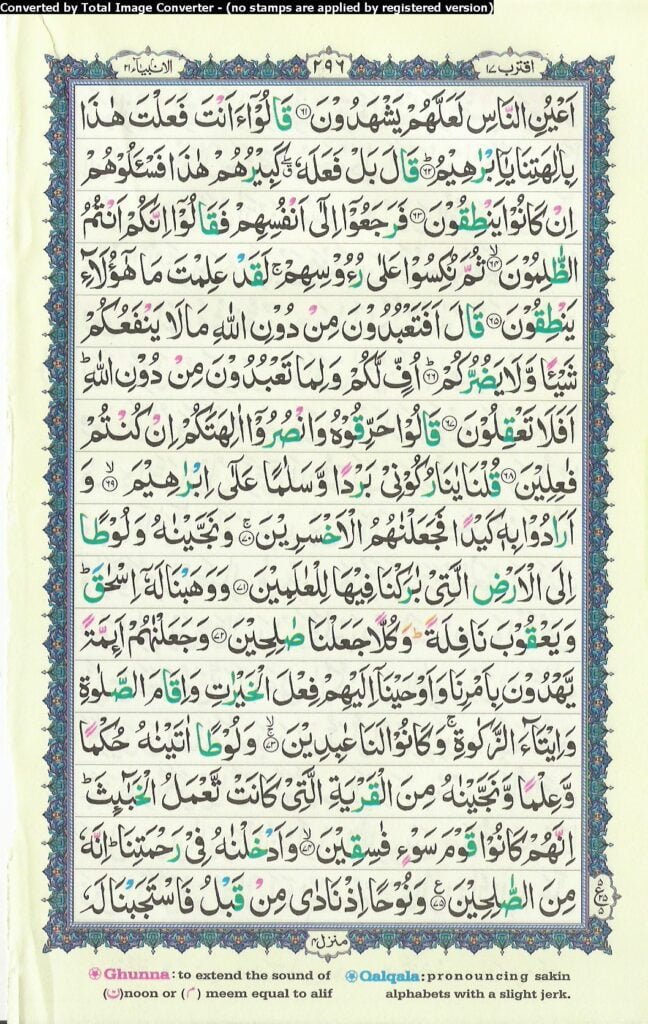 Converted by Total Image Converter - (no stamps are applied by registered version)
اقترب ١٧ ٢٩٦ الانبیآء ٢١
اَعْیُنِ النَّاسِ لَعَلَّهُمْ یَشْهَدُوْنَ ﴿۶۱﴾ قَالُوْۤا ءَاَنْتَ فَعَلْتَ هٰذَا
بِاٰلِهَتِنَا یٰۤاِبْرٰهِیْمُ ؕ﴿۶۲﴾ قَالَ بَلْ فَعَلَهٗ ۖۗ كَبِیْرُهُمْ هٰذَا فَسْـَٔلُوْهُمْ
اِنْ كَانُوْا یَنْطِقُوْنَ ﴿۶۳﴾ فَرَجَعُوْۤا اِلٰۤی اَنْفُسِهِمْ فَقَالُوْۤا اِنَّكُمْ اَنْتُمُ
الظّٰلِمُوْنَ ۙ﴿۶۴﴾ ثُمَّ نُكِسُوْا عَلٰی رُءُوْسِهِمْ ۚ لَقَدْ عَلِمْتَ مَا هٰۤؤُلَآءِ
یَنْطِقُوْنَ ﴿۶۵﴾ قَالَ اَفَتَعْبُدُوْنَ مِنْ دُوْنِ اللّٰهِ مَا لَا یَنْفَعُكُمْ
شَیْـًٔا وَّ لَا یَضُرُّكُمْ ؕ﴿۶۶﴾ اُفٍّ لَّكُمْ وَ لِمَا تَعْبُدُوْنَ مِنْ دُوْنِ اللّٰهِ ؕ
اَفَلَا تَعْقِلُوْنَ ﴿۶۷﴾ قَالُوْا حَرِّقُوْهُ وَ انْصُرُوْۤا اٰلِهَتَكُمْ اِنْ كُنْتُمْ
فٰعِلِیْنَ ﴿۶۸﴾ قُلْنَا یٰنَارُ كُوْنِیْ بَرْدًا وَّ سَلٰمًا عَلٰۤی اِبْرٰهِیْمَ ۙ﴿۶۹﴾ وَ
اَرَادُوْا بِهٖ كَیْدًا فَجَعَلْنٰهُمُ الْاَخْسَرِیْنَ ۚ﴿۷۰﴾ وَ نَجَّیْنٰهُ وَ لُوْطًا
اِلَی الْاَرْضِ الَّتِیْ بٰرَكْنَا فِیْهَا لِلْعٰلَمِیْنَ ﴿۷۱﴾ وَ وَهَبْنَا لَهٗۤ اِسْحٰقَ ؕ
وَ یَعْقُوْبَ نَافِلَةً ؕ وَ كُلًّا جَعَلْنَا صٰلِحِیْنَ ﴿۷۲﴾ وَ جَعَلْنٰهُمْ اَئِمَّةً
یَّهْدُوْنَ بِاَمْرِنَا وَ اَوْحَیْنَاۤ اِلَیْهِمْ فِعْلَ الْخَیْرٰتِ وَ اِقَامَ الصَّلٰوةِ
وَ اِیْتَآءَ الزَّكٰوةِ ۚ وَ كَانُوْا لَنَا عٰبِدِیْنَ ۚۙ﴿۷۳﴾ وَ لُوْطًا اٰتَیْنٰهُ حُكْمًا
وَّ عِلْمًا وَّ نَجَّیْنٰهُ مِنَ الْقَرْیَةِ الَّتِیْ كَانَتْ تَّعْمَلُ الْخَبٰٓىِٕثَ ؕ
اِنَّهُمْ كَانُوْا قَوْمَ سَوْءٍ فٰسِقِیْنَ ۙ﴿۷۴﴾ وَ اَدْخَلْنٰهُ فِیْ رَحْمَتِنَا ؕ اِنَّهٗ
مِنَ الصّٰلِحِیْنَ ﴿۷۵﴾ ع وَ نُوْحًا اِذْ نَادٰی مِنْ قَبْلُ فَاسْتَجَبْنَا لَهٗ
٥ ٢٥ ٥
منزل ٤
Ghunna: to extend the sound of (ن)noon or (م) meem equal to alif
Qalqala: pronouncing sakin alphabets with a slight jerk.